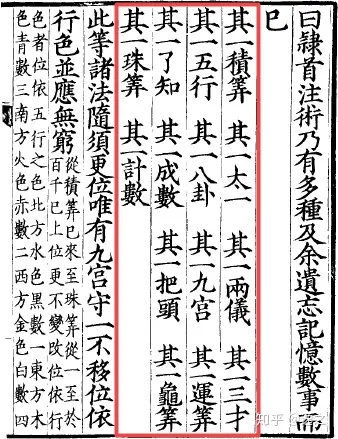 曰隸首注術乃有多種及余遺忘記憶數事而
已
其一積筭 其一太一 其一兩儀 其一三才
其一五行 其一八卦 其一九宮 其一運筭
其一了知 其一成數 其一把頭 其一龜筭
其一珠筭 其一計數
此等諸法隨須更位唯有九宮守一不移位依
行色並應無窮
從積筭已來至珠筭從一至於
百千已上位更不變改位依行
色者位依五行之色北方水色黑數一東方木
色青數三南方火色赤數二西方金色白數四